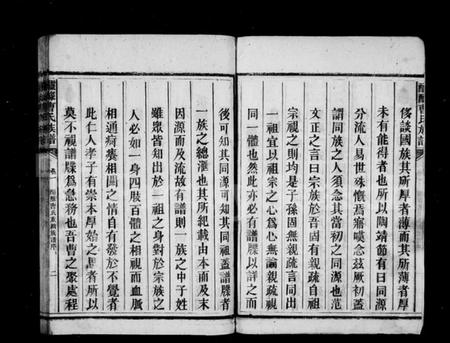 侈談國族其所厚者薄而其所薄者厚
未有能得者也所以陶靖節有曰同源
分流人易世殊慨焉寤嘆念茲厥初蓋
謂同族之人須念其當初之同源也范
文正之言曰宗族於吾固有親疏自祖
宗視之則均是子孫固無親疏言同出
一祖宜以祖宗之心爲心無論親疏視
同一體也然此亦必有譜牒以詳之而
後可知其同源可知其同祖蓋譜牒者
一族之總滙也其所紀載由本而及末
因源而及流故有譜則一族之中子姓
雖眾皆知出於一祖之身對於宗族之
人必如一身四肢百體之相視而血脈
相通痾癢相關之情自有發於不覺者
此仁人孝子有崇本厚始之思者所以
莫不視譜牒爲急務也吾曹之聚處程
曹氏族譜
卷一
二
曹氏族譜